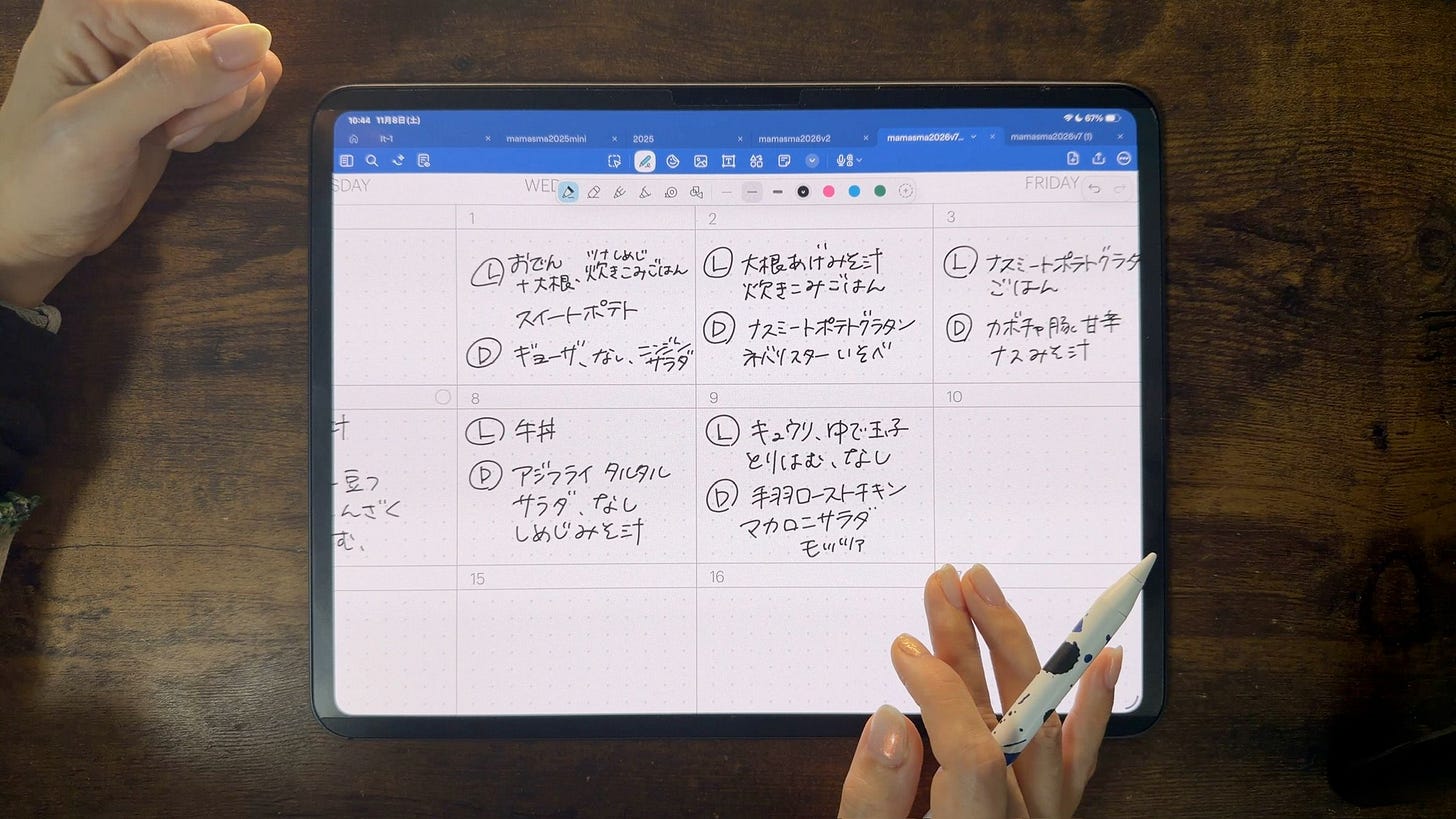 10:44 11月8日(土)
67%
lt-1
mamasma2025mini
2025
mamasma2026v2
mamasma2026v7...
mamasma2026v7 (1)
SDAY
WED
FRIDAY
1
2
3
L おでん
ツナしめじ
+大根、炊きこみごはん
スイートポテト
D ギョーザ、なし、ニンジン
サラダ
L 大根あげみそ汁
炊きこみごはん
D ナスミートポテトグラタン
ネバリスター いそべ
L ナスミートポテトグラタ
ごはん
D カボチャ豚 甘辛
ナスみそ汁
8
9
10
汁
豆つ
んざく
む、
L 牛丼
D アジフライ タルタル
サラダ、なし
しめじみそ汁
L キュウリ、ゆで玉子
とりはむ、なし
D 手羽ローストチキン
マカロニサラダ
15
16